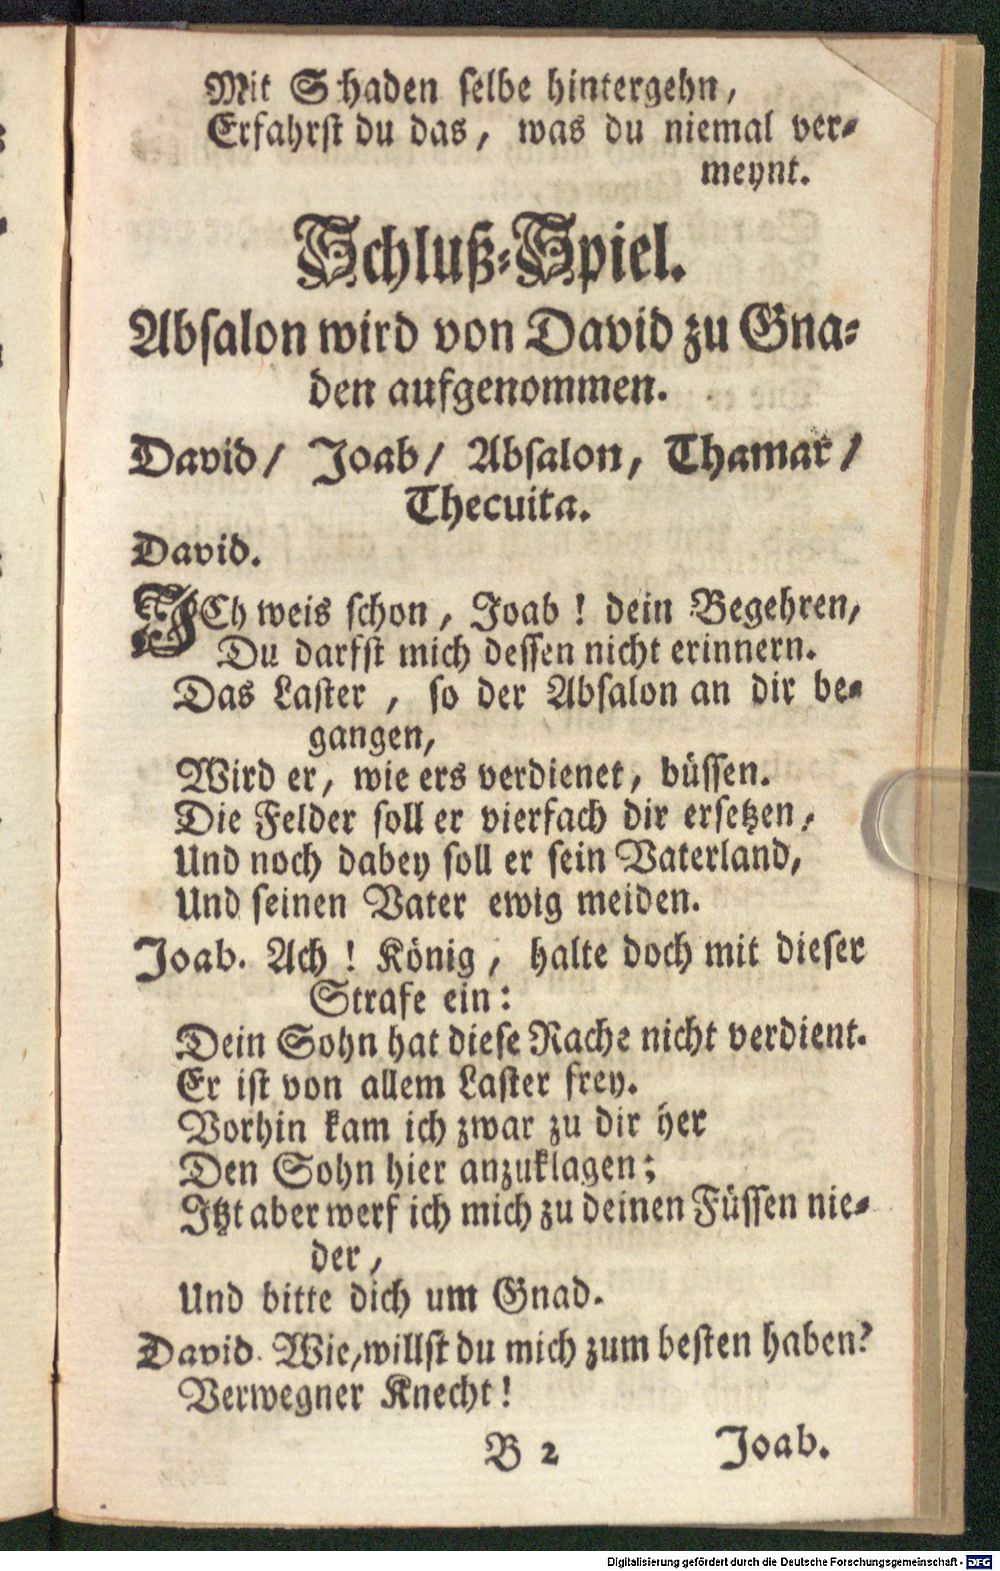 Mit Schaden selbe hintergehn,
Erfahrst du das, was du niemal ver-
meynt.
Schluß-Spiel.
Absalon wird von David zu Gna-
den aufgenommen.
David/ Joab/ Absalon, Thamar/
Thecuita.
David.
ICh weis schon, Joab! dein Begehren,
Du darfst mich dessen nicht erinnern.
Das Laster, so der Absalon an dir be-
gangen,
Wird er, wie ers verdienet, büssen.
Die Felder soll er vierfach dir ersetzen,
Und noch dabey soll er sein Vaterland,
Und seinen Vater ewig meiden.
Joab. Ach! König, halte doch mit dieser
Strafe ein:
Dein Sohn hat diese Rache nicht verdient.
Er ist von allem Laster frey.
Vorhin kam ich zwar zu dir her
Den Sohn hier anzuklagen;
Itzt aber werf ich mich zu deinen Füssen nie-
der,
Und bitte dich um Gnad.
David. Wie, willst du mich zum besten haben?
Verwegner Knecht!
B 2 Joab.
Digitalisierung gefördert durch die Deutsche Forschungsgemeinschaft - DFG